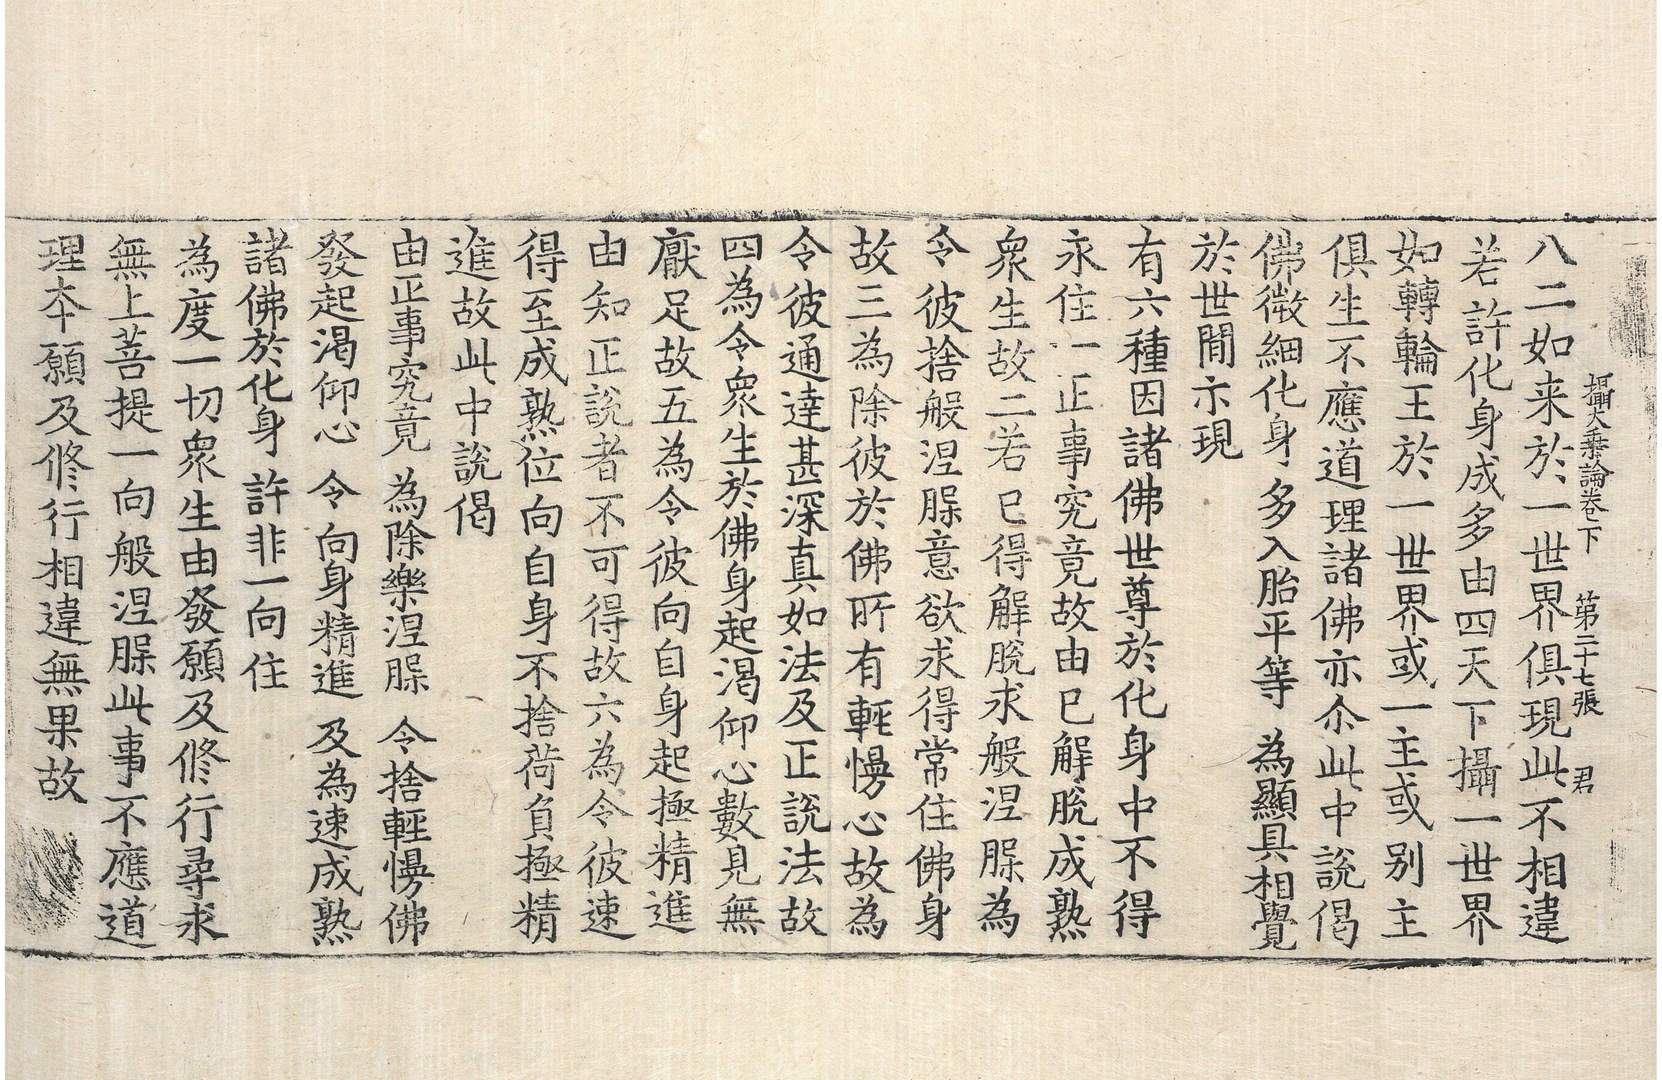 攝大乘論卷下 第二十七張 君
八二如来於一世界俱現此不相違
若許化身成多由四天下攝一世界
如轉輪王於一世界或一主或别主
俱生不應道理諸佛亦尒此中說偈
佛微細化身 多入胎平等 為顯具相覺
於世間示現
有六種因諸佛世尊於化身中不得
永住一正事究竟故由已解脫成熟
衆生故二若已得解脫求般涅槃為
令彼捨般涅槃意欲求得常住佛身
故三為除彼於佛所有輕慢心故為
令彼通達甚深真如法及正說法故
四為令衆生於佛身起渴仰心數見無
厭足故五為令彼向自身起極精進
由知正說者不可得故六為令彼速
得至成熟位向自身不捨荷負極精
進故此中說偈
由正事究竟 為除樂涅槃 令捨輕慢佛
發起渴仰心 令向身精進 及為速成熟
諸佛於化身 許非一向住
為度一切衆生由發願及修行尋求
無上菩提一向般涅槃此事不應道
理本願及修行相違無果故